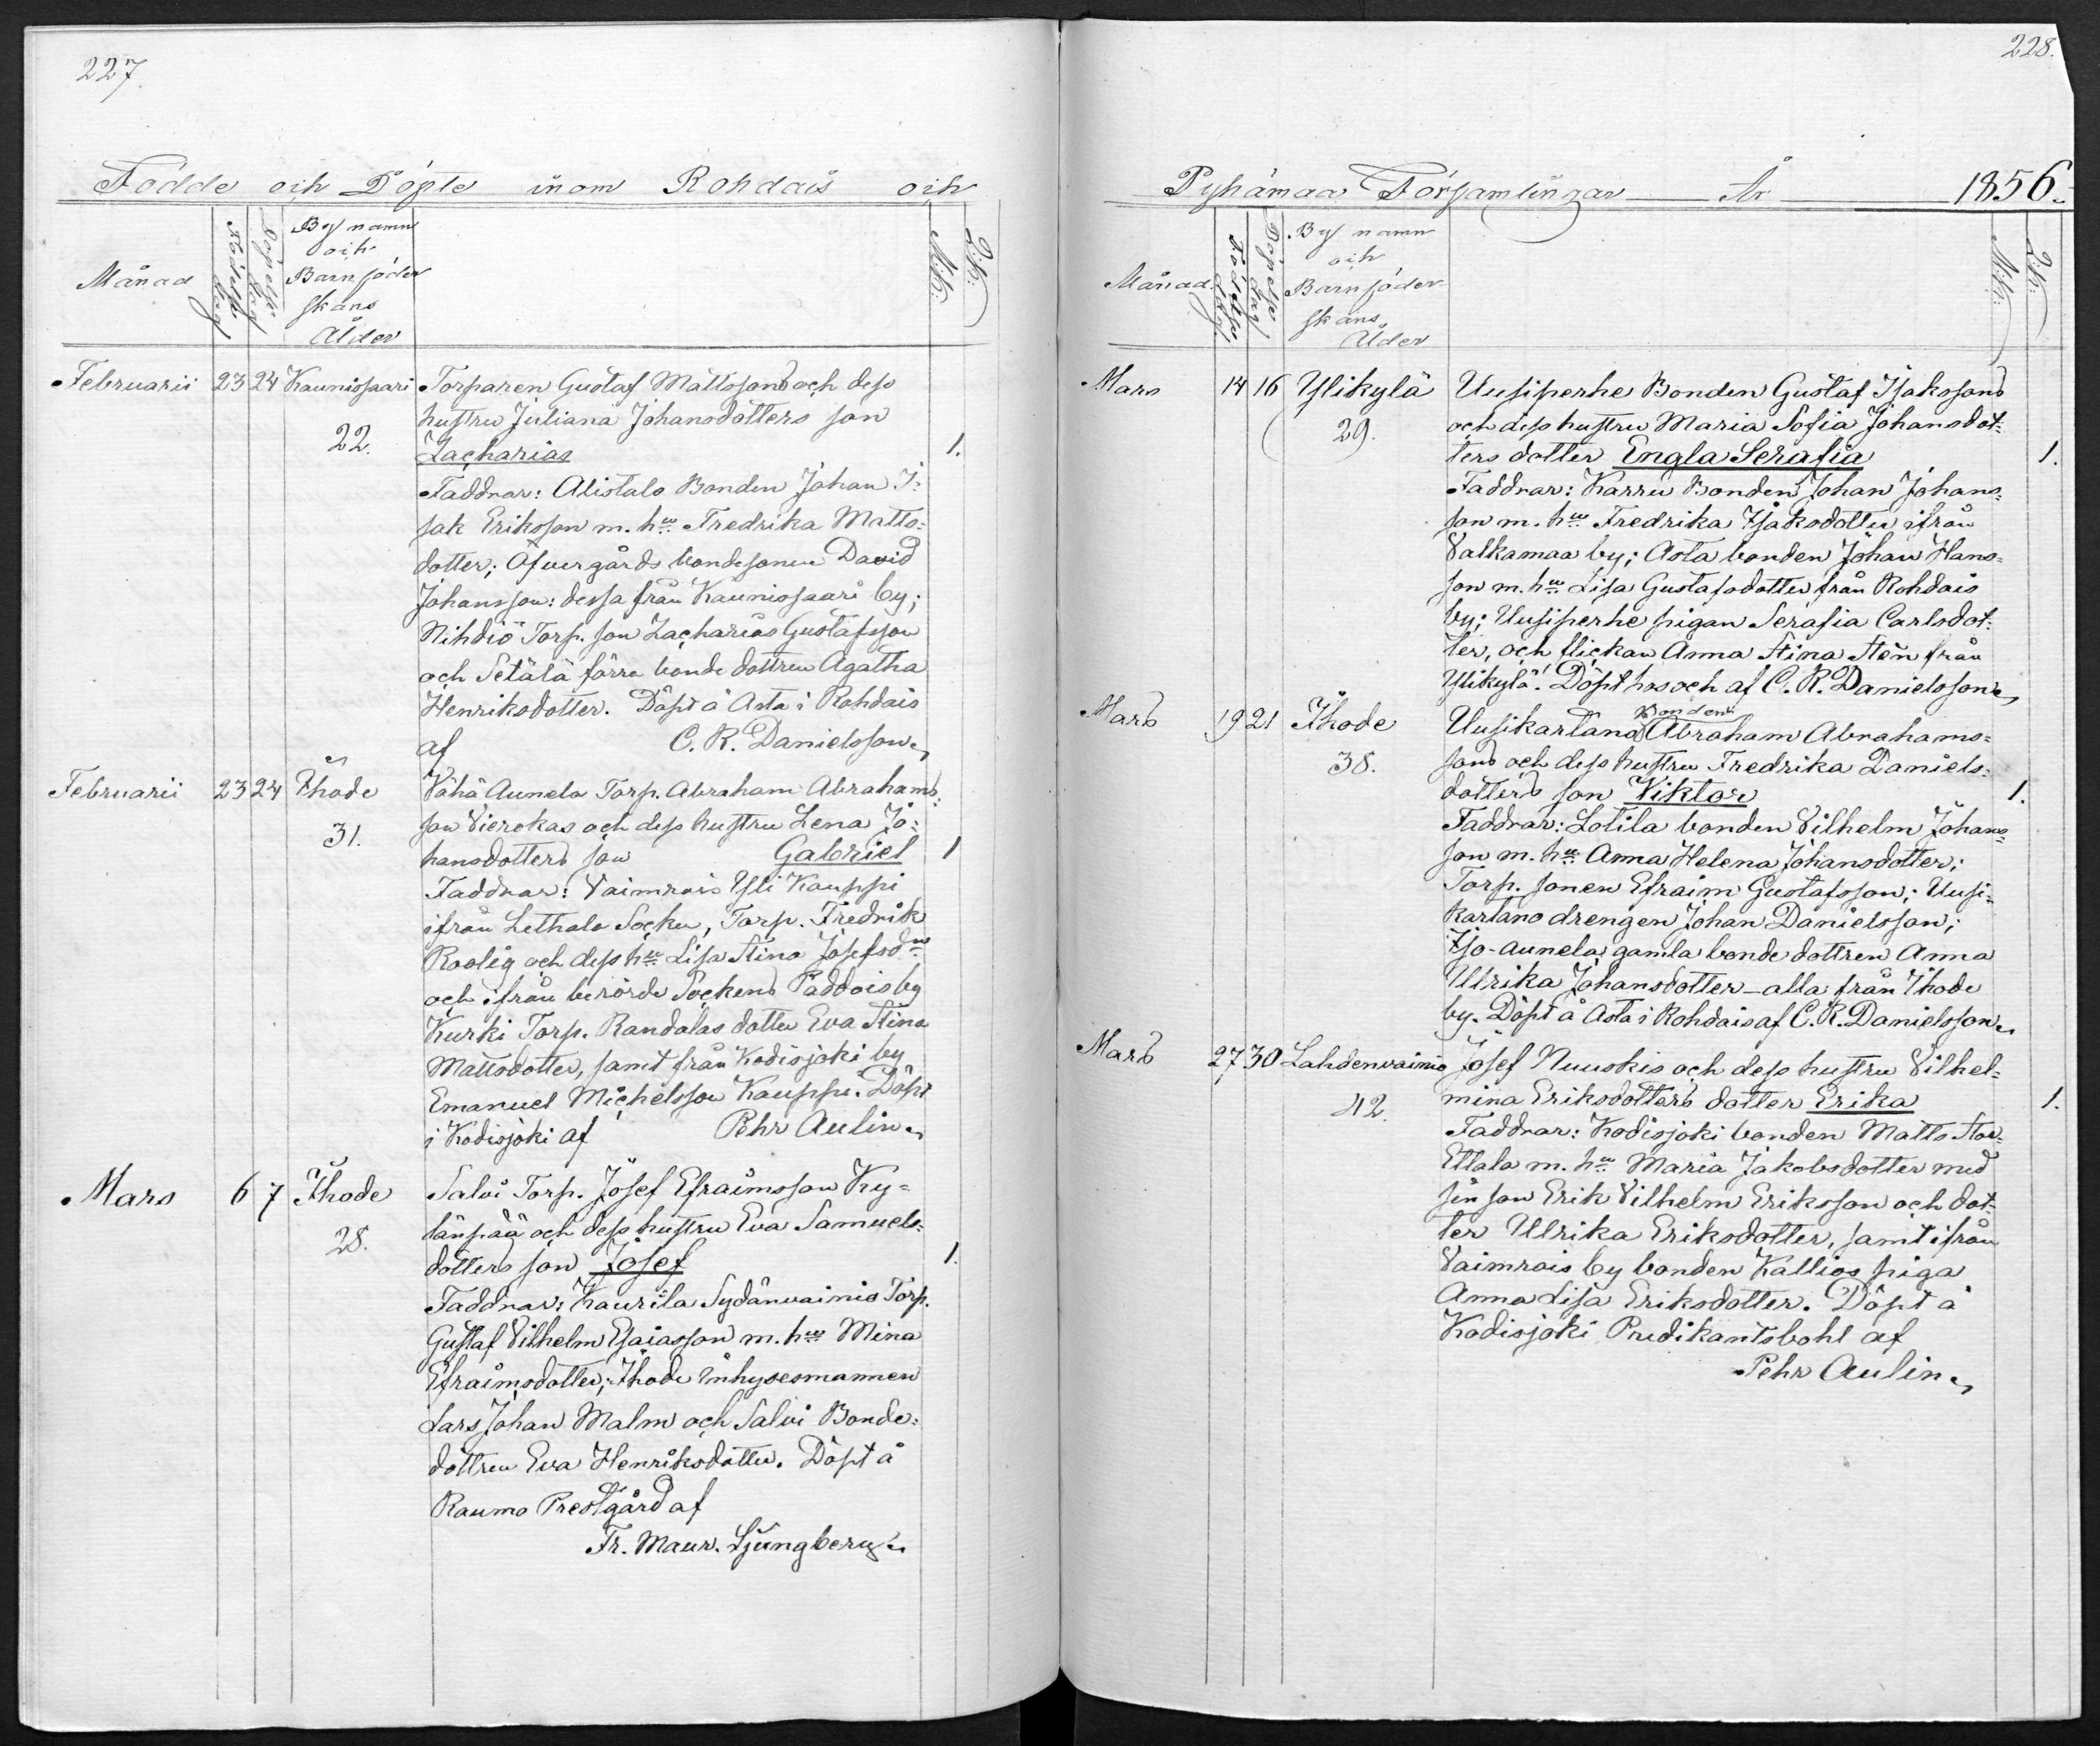 227.
Födde och Döpte inom Rohdais och
Månad
Födelse dag
Döpelse dag
By namn
och
Barnföder
skans
Ålder
M.k:
Q.k:
Februarii 23 24 Kaunissaari Torparen Gustaf Mattssons och dess
hustru Juliana Johansdotters son
22. Zacharias 1.
Faddrar: Alistalo Bonden Johan I=
sak Eriksson m. hu Fredrika Matts=
dotter; Öfvergårds bondesonen David
Johansson: dessa från Kaunissaari by;
Nihdiö Torp. son Zacharias Gustafsson
och Setälä förra bonde dottren Agatha
Henriksdotter. Döpt å Asta i Rohdais
af C. R. Danielsson.
Februarii 23 24 Ihode Vähä Aunela Torp. Abraham Abrahams=
son Vierokas och dess hustru Lena Jo=
31. hansdotters son Gabriel 1
Faddrar: Vaimrais Yli Kauppi
ifrån Lethala Socken, Torp. Fredrik
Roolig och dess hu Lisa Stina Josefsdr
och ifrån berörde Sockens Päddois by
Kurki Torp. Randalas dotter Eva Stina
Mattsdotter, samt från Kodisjoki by
Emanuel Michelsson Kauppi. Döpt
i Kodisjoki af Pehr Aulin.
Mars 6 7 Ihode Salvi Torp. Josef Efraimsson Ky=
länpää och dess hustru Eva Samuels=
28. dotters son Josef 1.
Faddrar: Kaurila Sydänvainio Torp.
Gustaf Vilhelm Esaiasson m. hu Mina
Efraimsdotter; Ihode Inhysesmannen
Lars Johan Malm och Salvi Bonde=
dottren Eva Henriksdotter. Döpt å
Raumo Prestgård af
Fr. Maur. Ljungberg.
228.
Pyhämaa Församlingar År 1856.
Månad.
Födelse dag.
Döpelse dag
By namn
och
Barnföder
skans
Ålder
M.k:
Q.k:
Mars 14 16 Ylikylä Uusiperhe Bonden Gustaf Isakssons
29. och dess hustru Maria Sofia Johansdot=
ters dotter Engla Serafia 1.
Faddrar: Karru Bonden Johan Johans=
son m. hu Fredrika Isaksdotter ifrån
Valkamaa by; Asta bonden Johan Hans=
son m. hu Lisa Gustafsdotter från Rohdais
by; Uusiperhe pigan Serafia Carlsdot=
ter, och flickan Anna Stina Stén från
Ylikylä. Döpt hos och af C. R. Danielsson.
Mars 19 21 Ihode Uusikartano Bonden Abraham Abrahams=
38. sons och dess hustru Fredrika Daniels=
dotters son Viktor 1.
Faddrar: Lotila bonden Vilhelm Johans=
son m. hu Anna Helena Johansdotter;
Torp. sonen Efraim Gustafsson; Uusi=
kartano drengen Johan Danielsson;
Iso-aunela gamla bonde dottren Anna
Ullrika Johansdotter - alla från Ihode
by. Döpt å Asta i Rohdais af C. R. Danielsson.
Mars 27 30 Lahdenvainio Josef Nuuskis och dess hustru Vilhel=
42. mina Eriksdotters dotter Erika 1.
Faddrar: Kodisjoki bonden Matts Stor
Ettala m. hu Maria Jakobsdotter med
sin son Erik Vilhelm Eriksson och dot=
ter Ullrika Eriksdotter, samt ifrån
Vaimrais by bonden Kallios piga
Anna Lisa Eriksdotter. Döpt å
Kodisjoki Predikantsbohl af
Pehr Aulin.